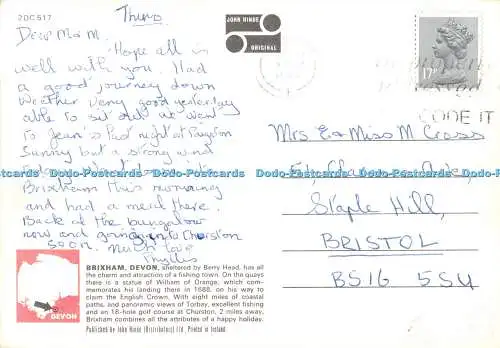 2DC517
Thurs
JOHN HINDE
ORIGINAL
17P
CODE IT
Dear Ma M.
Hope all is
well with you. Had
a good journey down
Weather very good yesterday
able to sit out we went
to Jean's Past night at Paignton
Sunny but a strong wind
today. Went to
Brixham this morning
and had a meal there.
Back at the bungalow
now and going to Churston
soon. much love
Phyllis
Mrs E & Miss M Cross
51,
Staple Hill,
BRISTOL
BS16 5SU
Dodo-Postcards Dodo-Postcards Dodo-Postcards Dodo-Postcards
DEVON
BRIXHAM, DEVON, sheltered by Berry Head, has all
the charm and attraction of a fishing town. On the quays
there is a statue of William of Orange, which com-
memorates his landing there in 1688, on his way to
claim the English Crown. With eight miles of coastal
paths, and panoramic views of Torbay, excellent fishing
and an 18-hole golf course at Churston, 2 miles away,
Brixham combines all the attributes of a happy holiday.
Published by John Hinde (Distributors) Ltd., Printed in Ireland